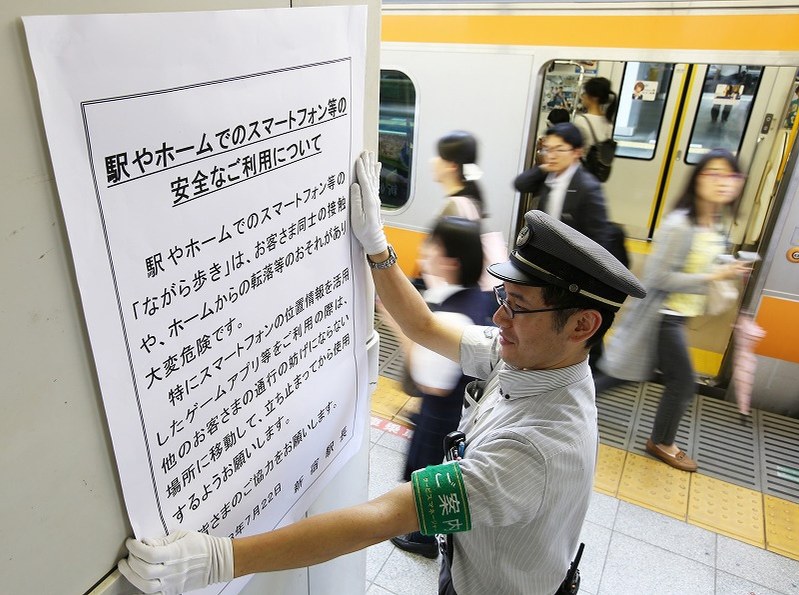 駅やホームでのスマートフォン等の
安全なご利用について
駅やホームでのスマートフォン等の
「ながら歩き」は、お客さま同士の接触
や、ホームからの転落等のおそれがあり
大変危険です。
特にスマートフォンの位置情報を活用
したゲームアプリ等をご利用の際は、
他のお客さまの通行の妨げにならない
場所に移動して、立ち止まってから使用
するようお願いします。
皆さまのご協力をお願いします。
年7月22日 新宿駅長
ご案内